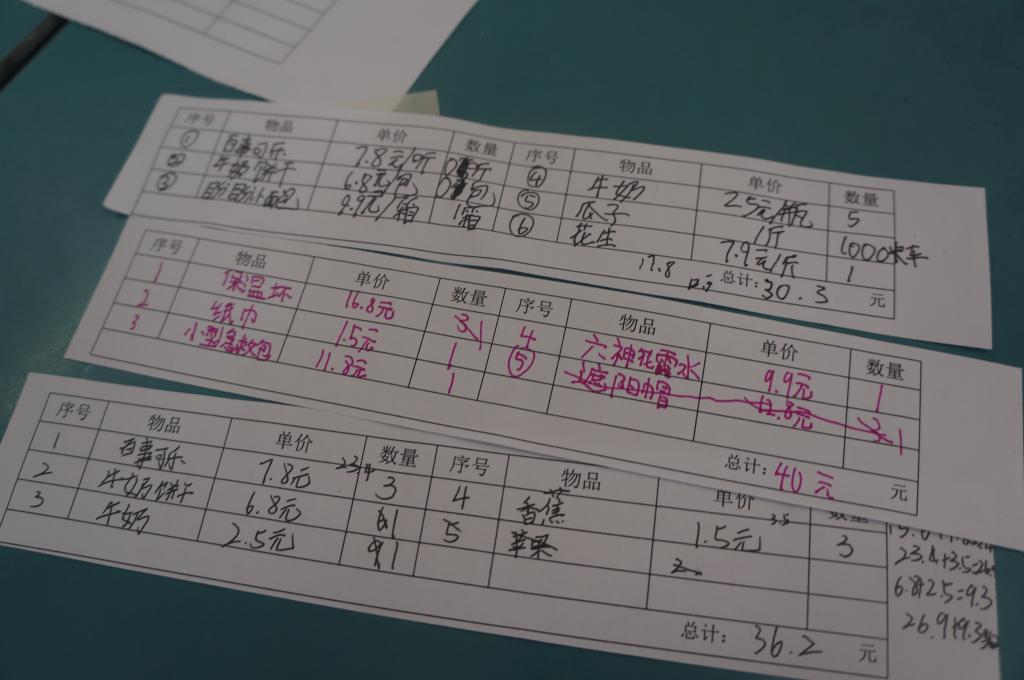 序号 物品 单价 数量 序号 物品 单价 数量
① 百事可乐 7.8元/斤 ④ 牛奶 2.5元/瓶 5
② 牛奶饼干 6.8元/包 包 ⑤ 瓜子 1斤 1000
③ 面包 9.9元/箱 1箱 ⑥ 花生 7.9元/斤 1
17.8 总计:30.3 元
序号 物品 单价 数量 序号 物品 单价 数量
1 保温坏 16.8元 3 1 4 六神花露水 9.9元 1
2 纸巾 1.5元 1 ⑤ 遮阳帽 12.8元 1
3 小型急救包 11.8元 1
总计:40元 元
序号 物品 单价 数量 序号 物品 单价 数量
1 百事可乐 7.8元 23.4 3 4 香蕉 1.5元 3.5 3
2 牛奶饼干 6.8元 1 5 苹果
3 牛奶 2.5元 1
23.4+3.5=26.9
6.8+2.5=9.3
26.9+9.3
总计: 36.2 元